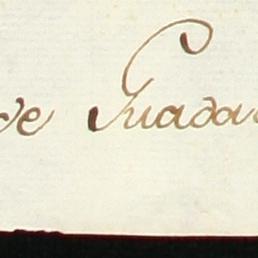 de Guada